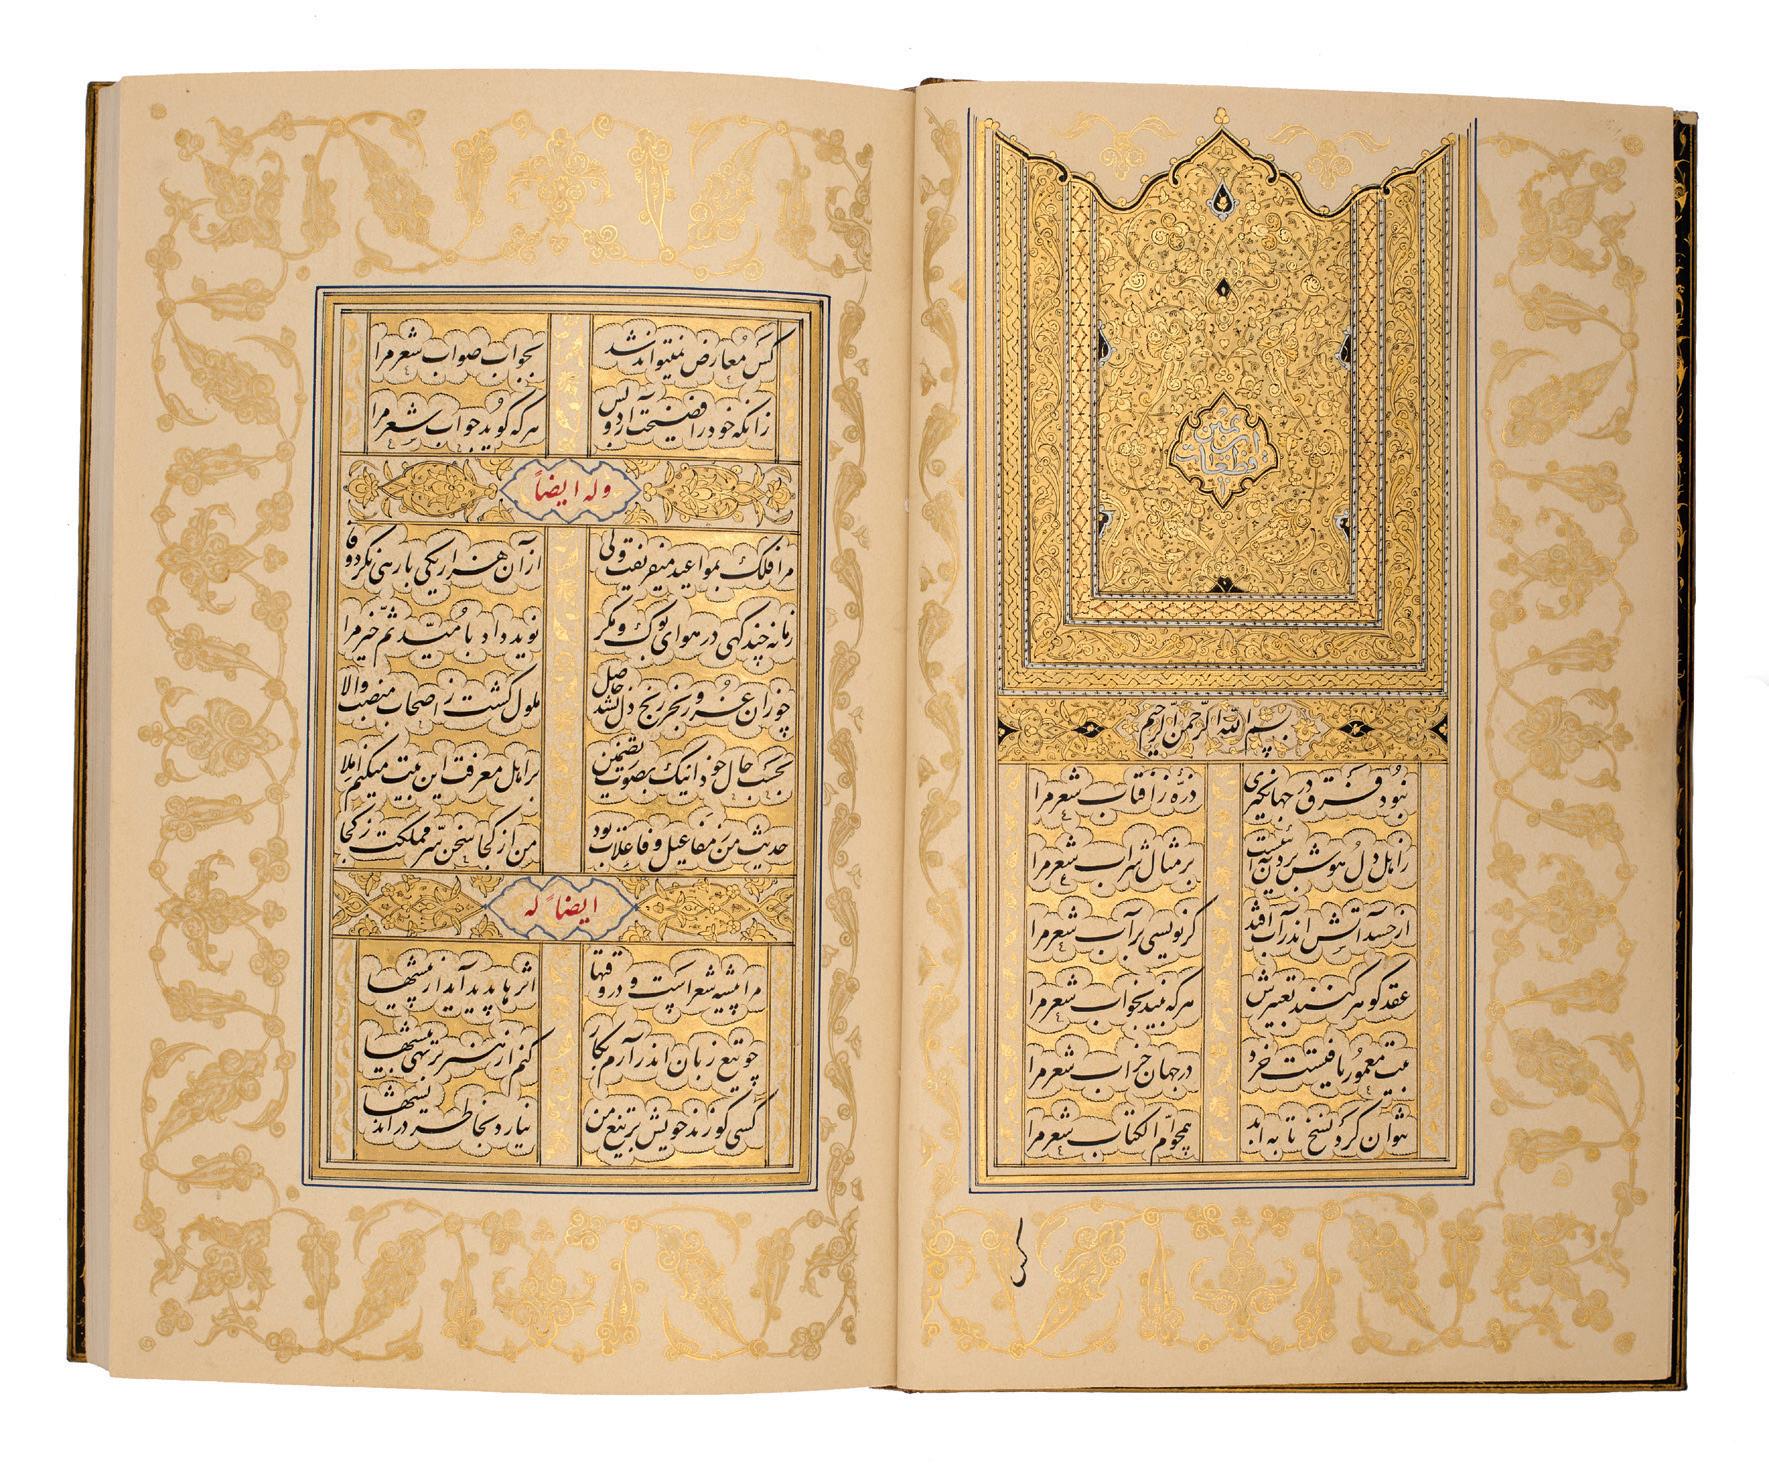 مقطعات ابن یمین
بسم الله الرحمن الرحیم
نبود فرق در جهانگیری ذرّه ز آفتاب شعر مرا
ز اهل دل هوش برد نیست بر مثال شراب شعر مرا
از حسد آتش اندر آب افتد گر نویسی بر آب شعر مرا
عقد گوهر کنند تعبیرش هر که بیند بخواب شعر مرا
بیت معمور یافتست خرد در جهان خراب شعر مرا
نتوان کرد نسخ تا به ابد همچو ام الکتاب شعر مرا
کس
کس معارض نمیتواند شد بجواب صواب شعر مرا
زانکه خود را فضیحت آرد و بس هر که گوید جواب شعر مرا
وله ایضاً
مرا فلک بمواعید میفریفت ولی از آن هزار یکی بار هی نکرد وفا
زمانه چند گهی در هوای بوک و مگر نوید داد با مید ثم خیر مرا
چو زان غرور بجز رنج دل نشد حاصل ملول گشت ز اصحاب منصب والا
بحسب حال خود اینک بصوت تضمین بر اهل معرفت این بیت میکنم املا
حدیث من ز مفاعیل و فاعلات بود من از کجا سخن سرّ مملکت ز کجا
ایضاً له
مرا پیشه شعر است و در وقتها اثرها پدید آید از پیشها
چو تیغ زبان اندر آرم بکار کنم از هنر بر تهی بیشها
کسی کو زند خویش بر تیغ من نیارد بخاطر در اندیشها